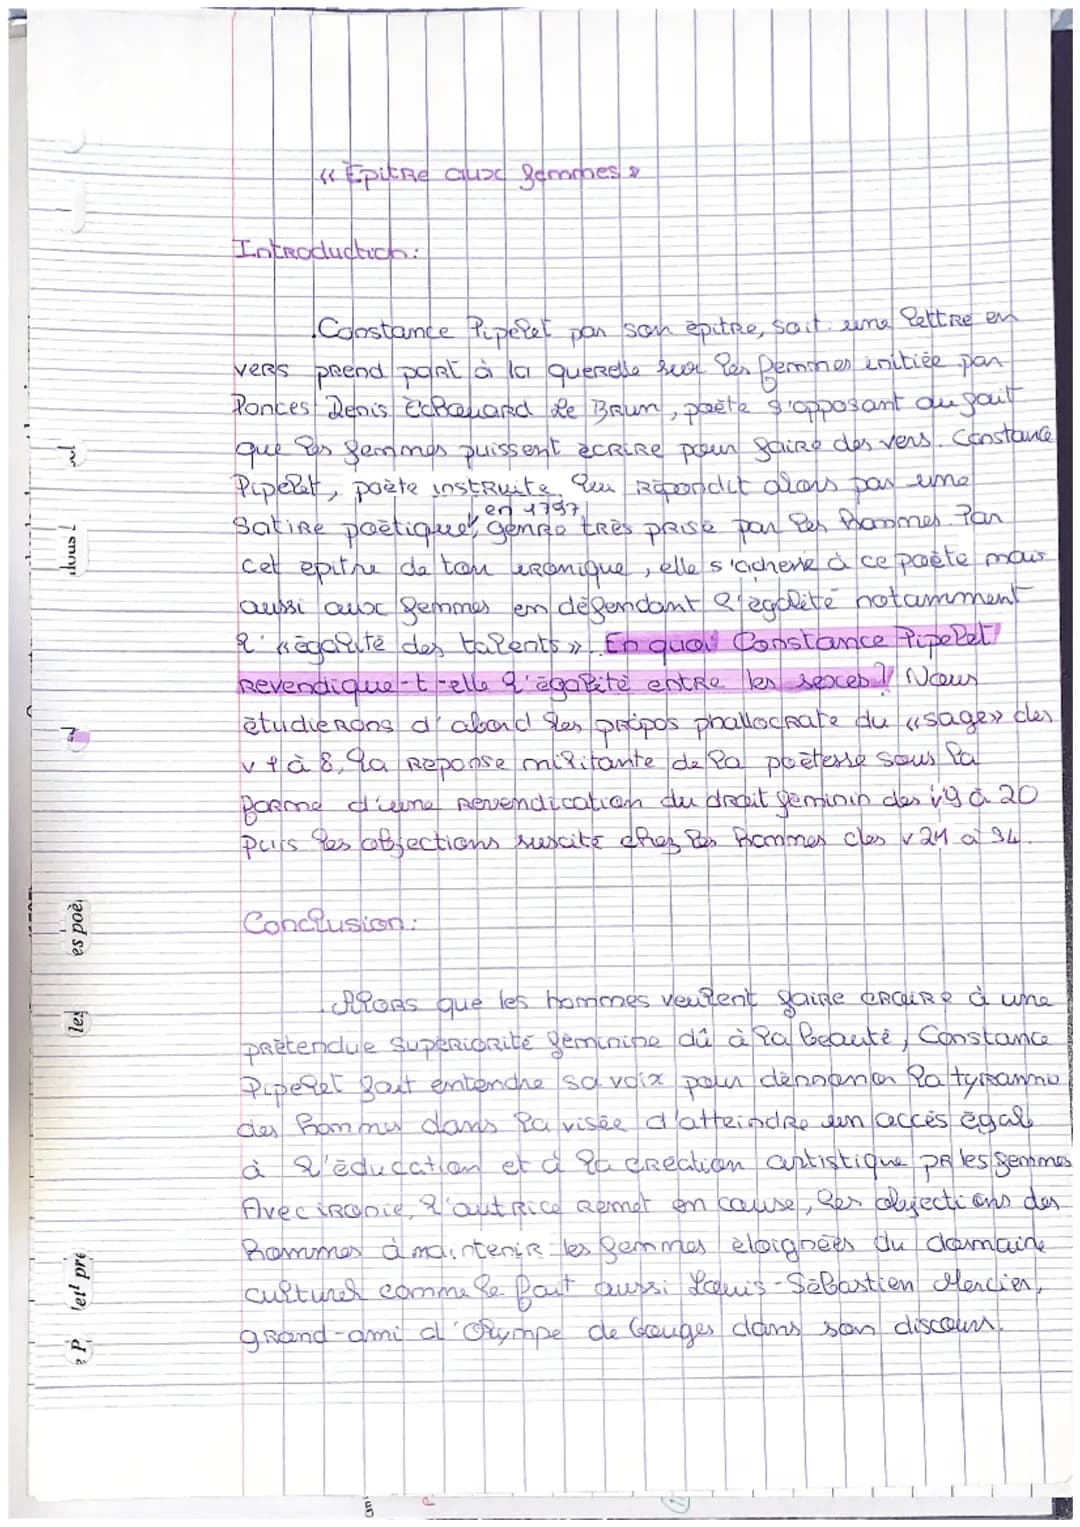 « Epitre aux femmes »
Introduction:
Constance Pipelet par son épitre, soit une lettre en
vers prend part à la querelle sur les femmes initiée par
Ponces Denis Echouard Le Brun, poète s'opposant au fait
que les femmes puissent écrire pour faire des vers. Constance
Pipelet, poète instruite, lui répondit alors par une
en 1797
satire poétique, genre très prisé par les hommes. Par
cet epitre de ton ironique, elle s'acheve à ce poète mais
aussi aux femmes en défendant l'égalité notamment
l' «égalité des talents». En quoi Constance Pipelet
revendique-t-elle l'égalité entre les sexes? Nous
étudierons d'abord les propos phallocrate du «sage» des
v 1 à 8, la reponse militante de la poètesse sous la
forme d'une revendication du droit féminin des v9 à 20
puis les objections suscité chez les hommes des v 21 à 34.
Conclusion:
Alors que les hommes veulent faire croire à une
prétendue supériorité féminine dû à la beauté, Constance
Pipelet fait entendre sa voix pour dénnoncer la tyrannie
des hommes dans la visée d'atteindre un accès égal
à l'éducation et à la création artistique par les femmes
Avec ironie, l'autrice remet en cause, les objections des
hommes à maintenir les femmes éloignées du domaine
culturel comme le fait aussi Louis-Sébastien Mercier,
grand-ami d'Olympe de Gouges dans son discours.
dous !
es poè
les
et pré
P